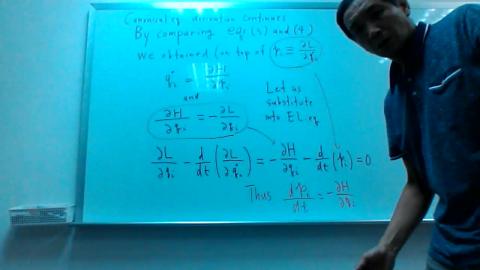 Canonical eq derivation continues
By comparing eqs (3) and (4)
We obtained (on top of p_i ≡ ∂L/∂q̇_i
q̇_i = ∂H/∂p_i
and
∂H/∂q_i = -∂L/∂q_i
Let us
substitute
into EL eq
∂L/∂q_i - d/dt (∂L/∂q̇_i) = -∂H/∂q_i - d/dt (p_i) = 0
Thus dp_i/dt = -∂H/∂q_i